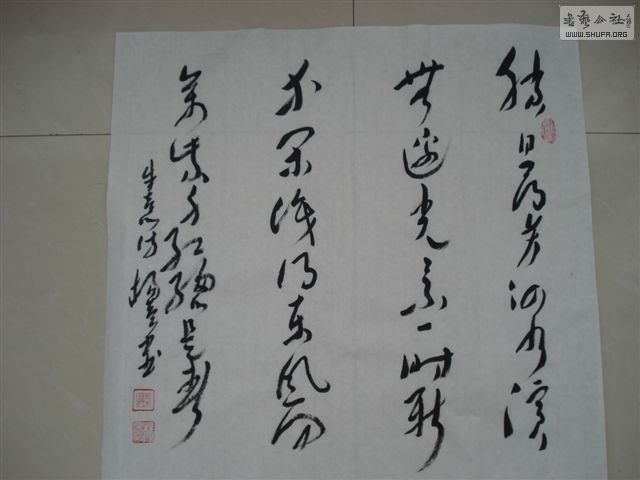 書藝公社
WWW.SHUFA.ORG
勝日尋芳泗水濱
無邊光景一時新
等閑識得東風面
萬紫千紅總是春
朱熹詩 書